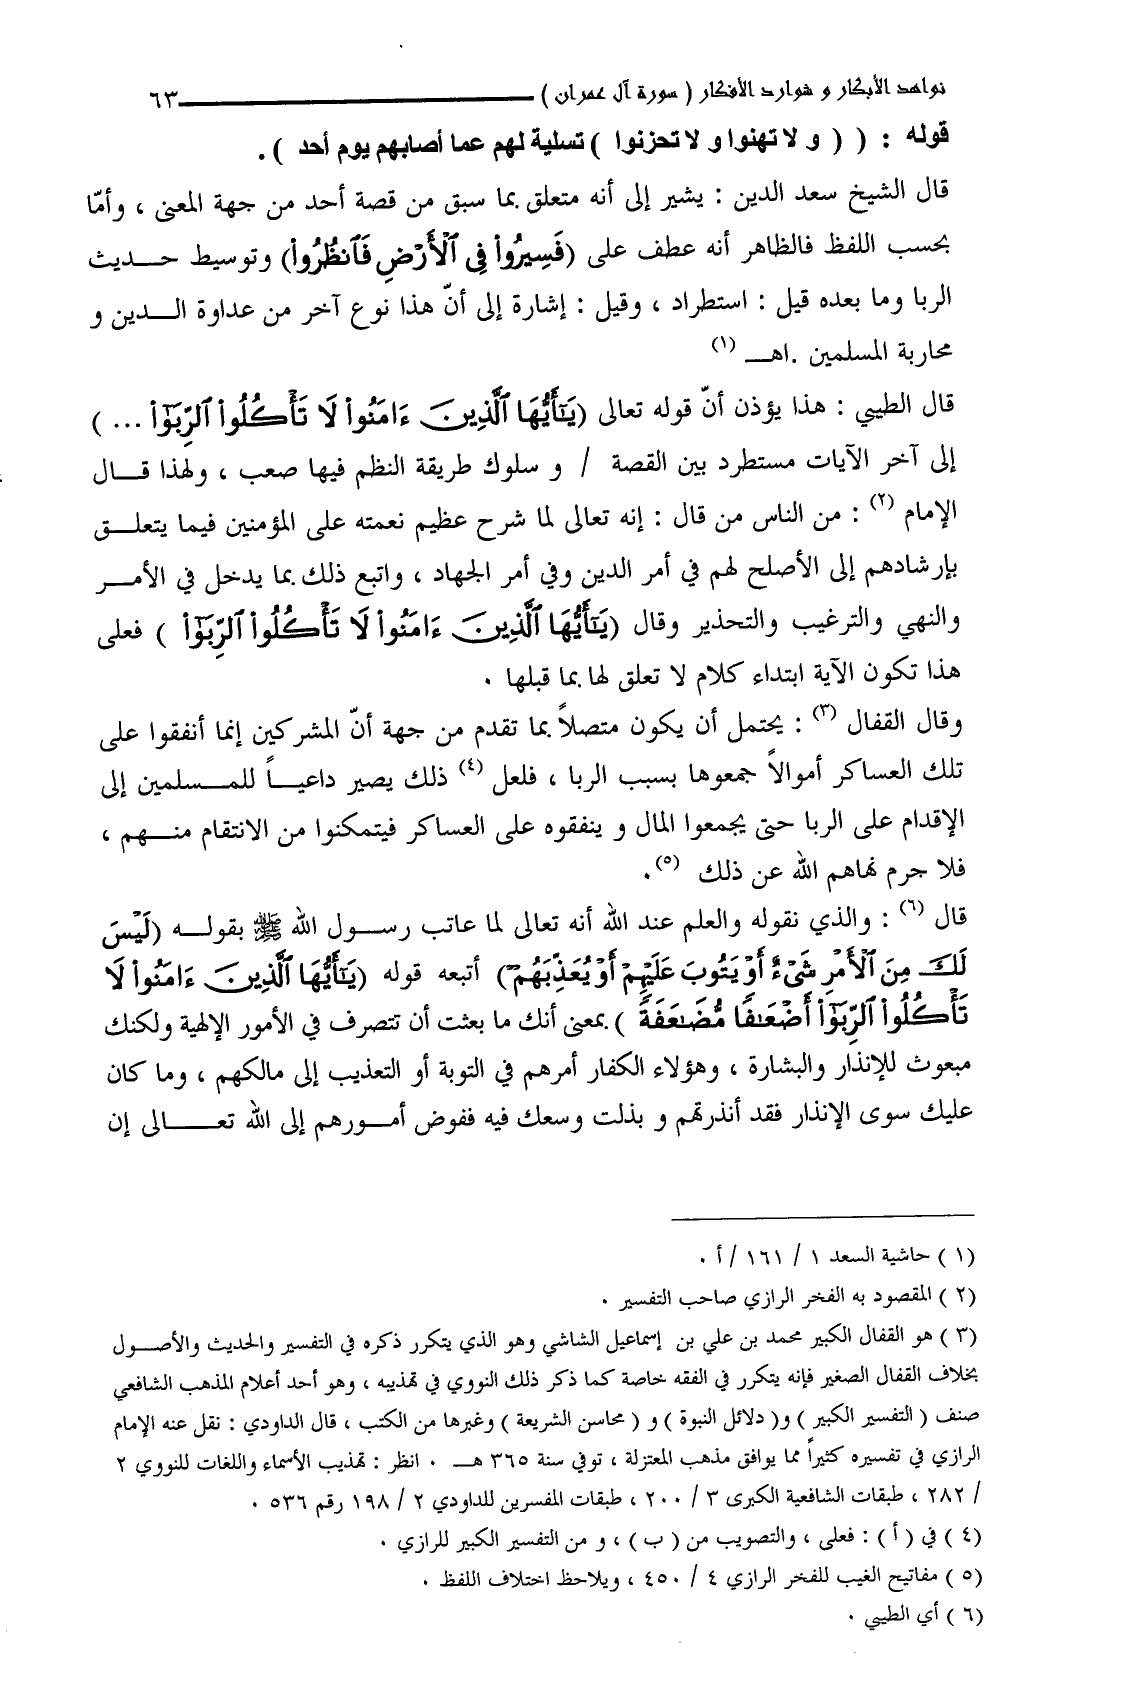 نواهد الأبكار و شوارد الأفكار ( سورة آل عمران ) ٦٣
قوله : ( ( و لا تهنوا و لا تحزنوا ) تسلية لهم عما أصابهم يوم أحد ) .
قال الشيخ سعد الدين : يشير إلى أنه متعلق بما سبق من قصة أحد من جهة المعنى ، وأمّا
بحسب اللفظ فالظاهر أنه عطف على (فَسِيرُواْ فِي ٱلْأَرْضِ فَٱنظُرُواْ) وتوسيط حـــديث
الربا وما بعده قيل : استطراد ، وقيل : إشارة إلى أنّ هذا نوع آخر من عداوة الـــدين و
محاربة المسلمين .اهـــ (١)
قال الطيبي : هذا يؤذن أنّ قوله تعالى (يَٰٓأَيُّهَا ٱلَّذِينَ ءَامَنُواْ لَا تَأْكُلُواْ ٱلرِّبَوٰٓاْ ... )
إلى آخر الآيات مستطرد بين القصة / و سلوك طريقة النظم فيها صعب ، ولهذا قـــال
الإمام (٢) : من الناس من قال : إنه تعالى لما شرح عظيم نعمته على المؤمنين فيما يتعلـــق
بإرشادهم إلى الأصلح لهم في أمر الدين وفي أمر الجهاد ، واتبع ذلك بما يدخل في الأمـــر
والنهي والترغيب والتحذير وقال (يَٰٓأَيُّهَا ٱلَّذِينَ ءَامَنُواْ لَا تَأْكُلُواْ ٱلرِّبَوٰٓاْ ) فعلى
هذا تكون الآية ابتداء كلام لا تعلق لها بما قبلها .
وقال القفال (٣) : يحتمل أن يكون متصلاً بما تقدم من جهة أنّ المشركين إنما أنفقوا على
تلك العساكر أموالاً جمعوها بسبب الربا ، فلعل (٤) ذلك يصير داعيـــاً للمـــسلمين إلى
الإقدام على الربا حتى يجمعوا المال و ينفقوه على العساكر فيتمكنوا من الانتقام منـــهم ،
فلا جرم نهاهم الله عن ذلك (٥).
قال (٦) : والذي نقوله والعلم عند الله أنه تعالى لما عاتب رســـول الله ﷺ بقولـــه (لَيْسَ
لَكَ مِنَ ٱلْأَمْرِ شَىْءٌ أَوْ يَتُوبَ عَلَيْهِمْ أَوْ يُعَذِّبَهُمْ) أتبعه قوله (يَٰٓأَيُّهَا ٱلَّذِينَ ءَامَنُواْ لَا
تَأْكُلُواْ ٱلرِّبَوٰٓاْ أَضْعَٰفًا مُّضَٰعَفَةً ) بمعنى أنك ما بعثت أن تتصرف في الأمور الإلهية ولكنك
مبعوث للإنذار والبشارة ، وهؤلاء الكفار أمرهم في التوبة أو التعذيب إلى مالكهم ، وما كان
عليك سوى الإنذار فقد أنذرتهم و بذلت وسعك فيه ففوض أمـــورهم إلى الله تعـــالى إن
(١) حاشية السعد ١ / ١٦١ /أ .
(٢) المقصود به الفخر الرازي صاحب التفسير .
(٣) هو القفال الكبير محمد بن علي بن إسماعيل الشاشي وهو الذي يتكرر ذكره في التفسير والحديث والأصـــول
بخلاف القفال الصغير فإنه يتكرر في الفقه خاصة كما ذكر ذلك النووي في تهذيبه ، وهو أحد أعلام المذهب الشافعي
صنف ( التفسير الكبير ) و( دلائل النبوة ) و ( محاسن الشريعة ) وغيرها من الكتب ، قال الداودي : نقل عنه الإمام
الرازي في تفسيره كثيراً مما يوافق مذهب المعتزلة ، توفي سنة ٣٦٥ هـــ . انظر : تهذيب الأسماء واللغات للنووي ٢
/ ٢٨٢ ، طبقات الشافعية الكبرى ٣ / ٢٠٠ ، طبقات المفسرين للداودي ٢ / ١٩٨ رقم ٥٣٦ .
(٤) في ( أ ) : فعلى ، والتصويب من ( ب ) ، و من التفسير الكبير للرازي .
(٥) مفاتيح الغيب للفخر الرازي ٤ / ٤٥٠ ، ويلاحظ اختلاف اللفظ .
(٦) أي الطيبي .